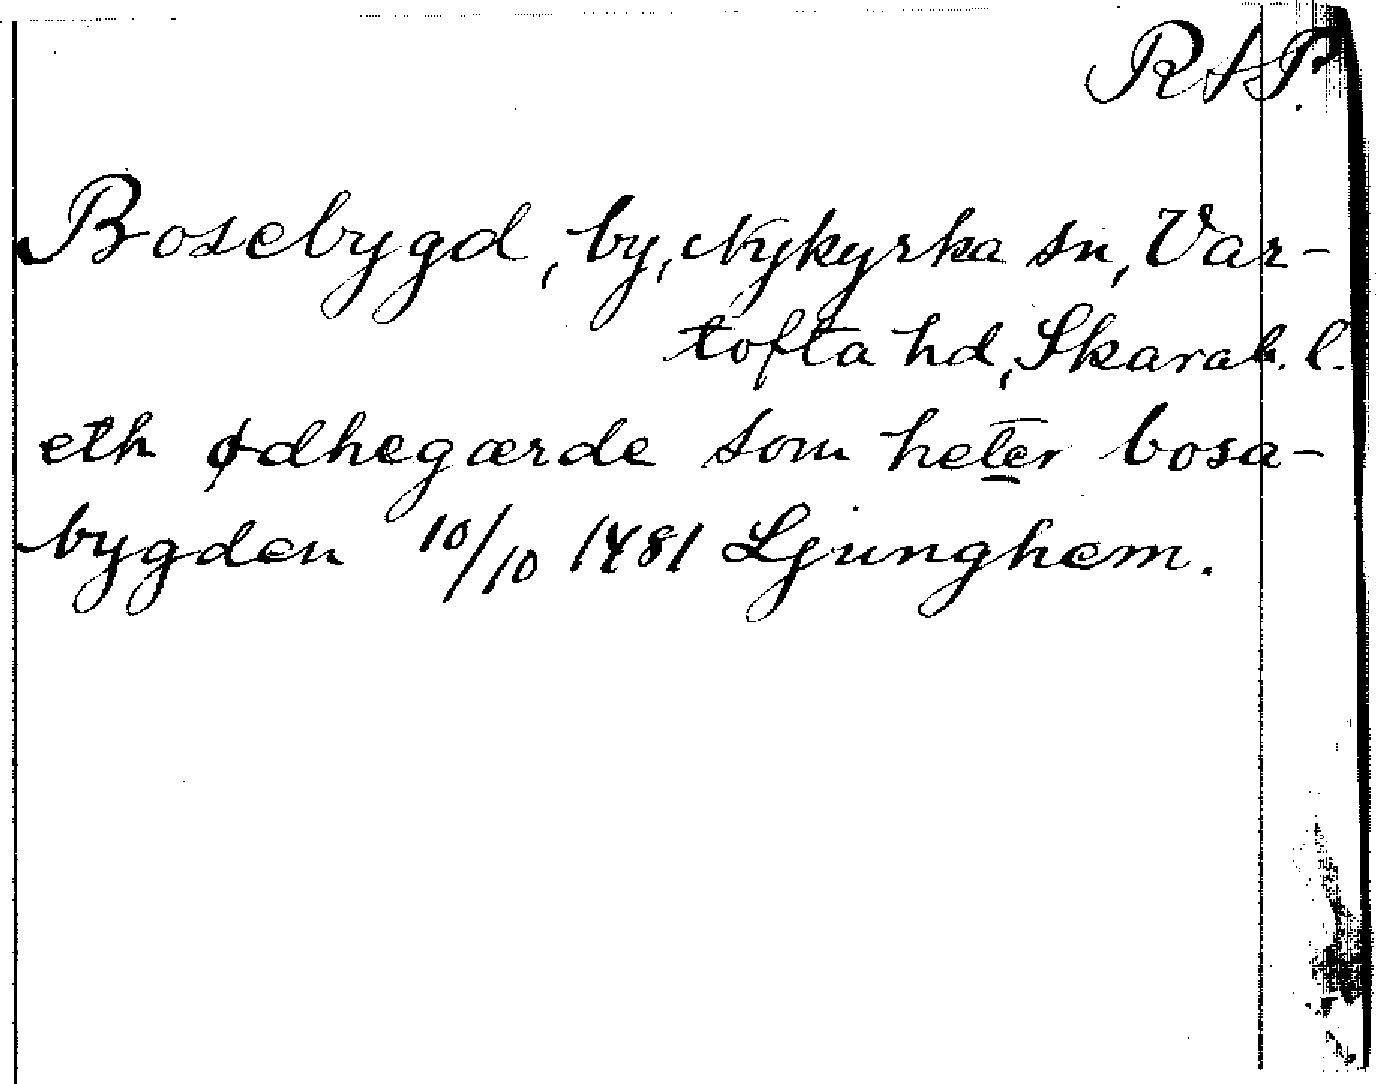 RAP.
Bosebygd, by, Nykyrka sn, Var-
tofta hd, Skarab. l.
eth ødhegærde som heter bosa-
bygden 10/10 1481 Ljunghem.